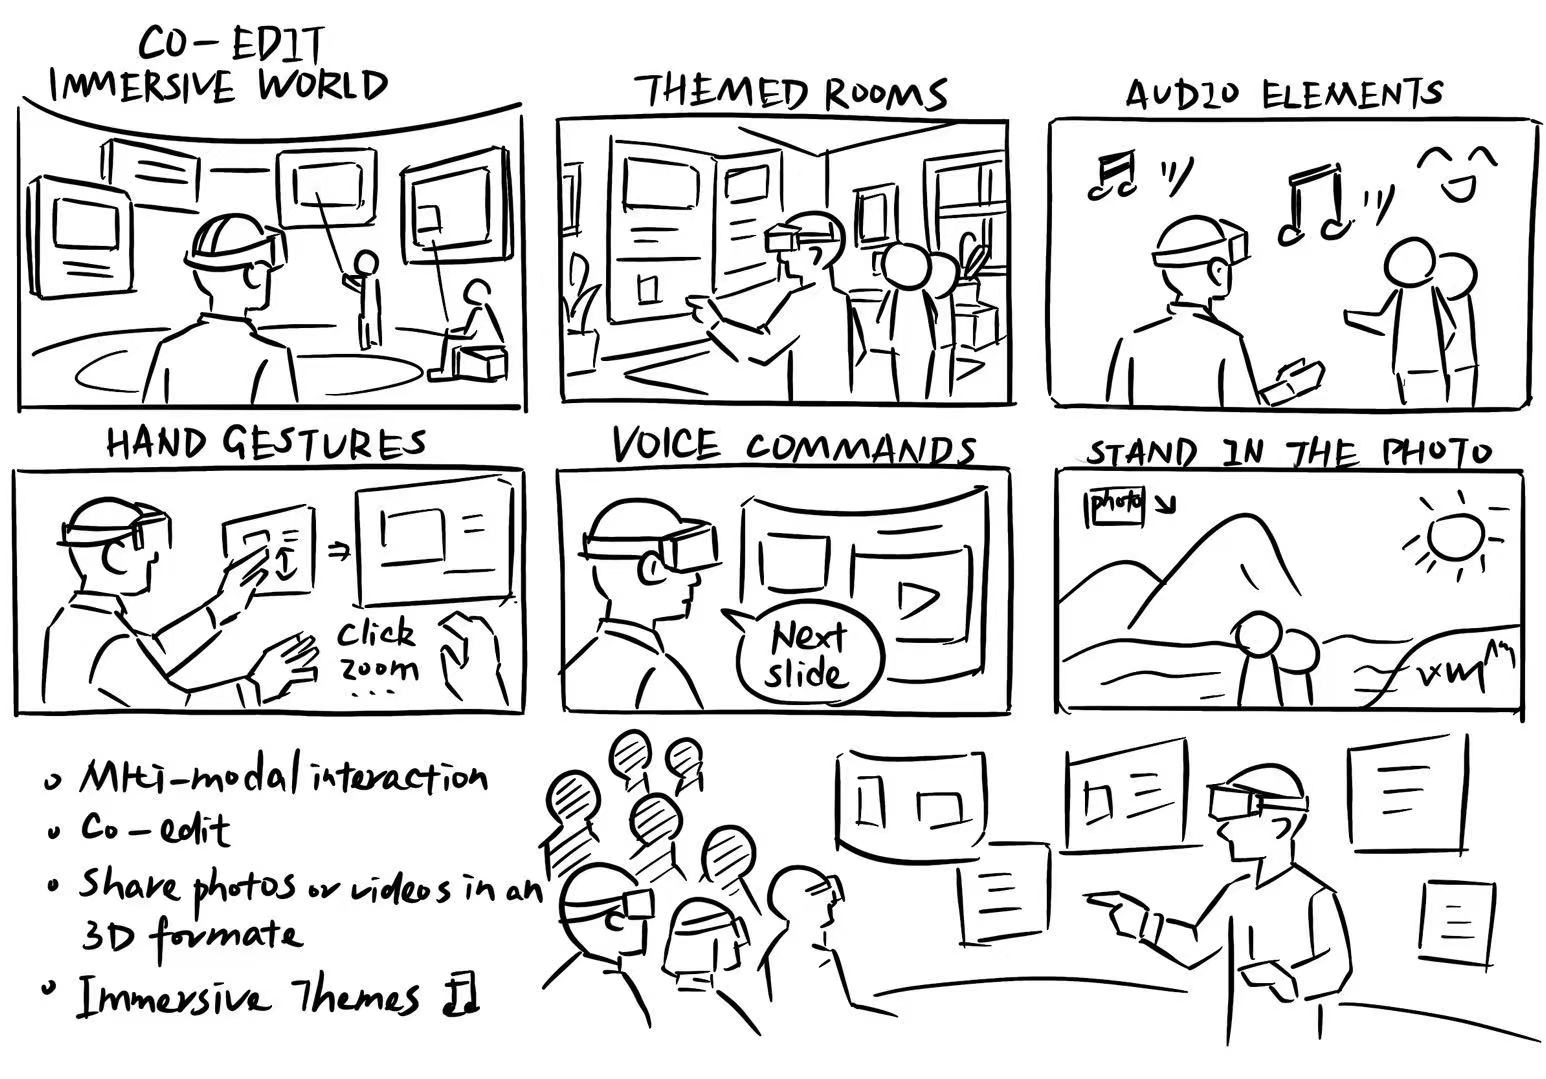 CO-EDIT
IMMERSIVE WORLD
THEMED ROOMS
AUDIO ELEMENTS
HAND GESTURES
Click
zoom
....
VOICE COMMANDS
Next
slide
STAND IN THE PHOTO
photo
Mlti-modal interaction
Co-edit
Share photos or videos in an
3D formate
Immersive Themes